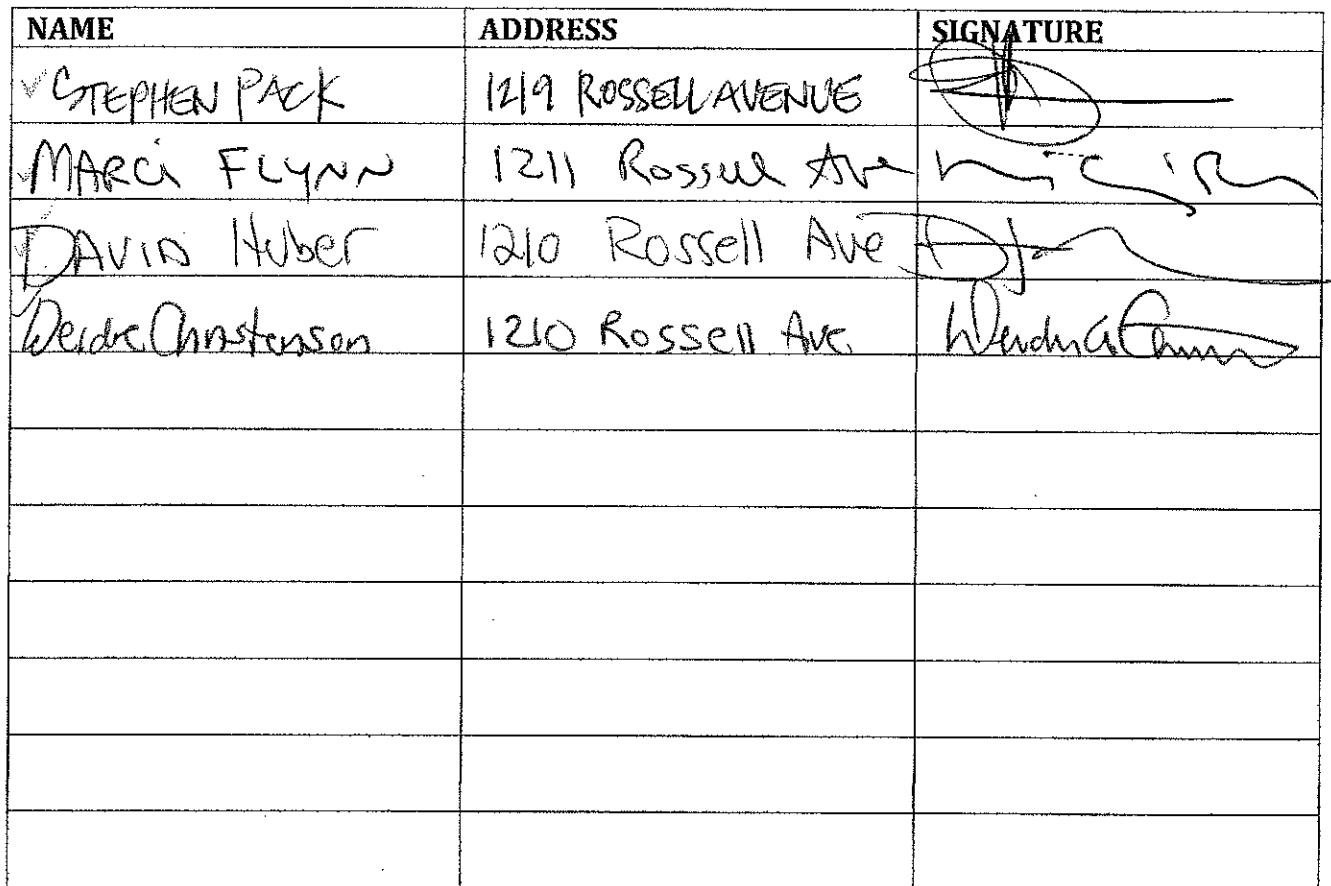 NAME ADDRESS SIGNATURE
STEPHEN PACK 1219 ROSSELL AVENUE
MARCI FLYNN 1211 Rossell Ave
DAVID Huber 1210 Rossell Ave
Deirdre Christenson 1210 Rossell Ave.